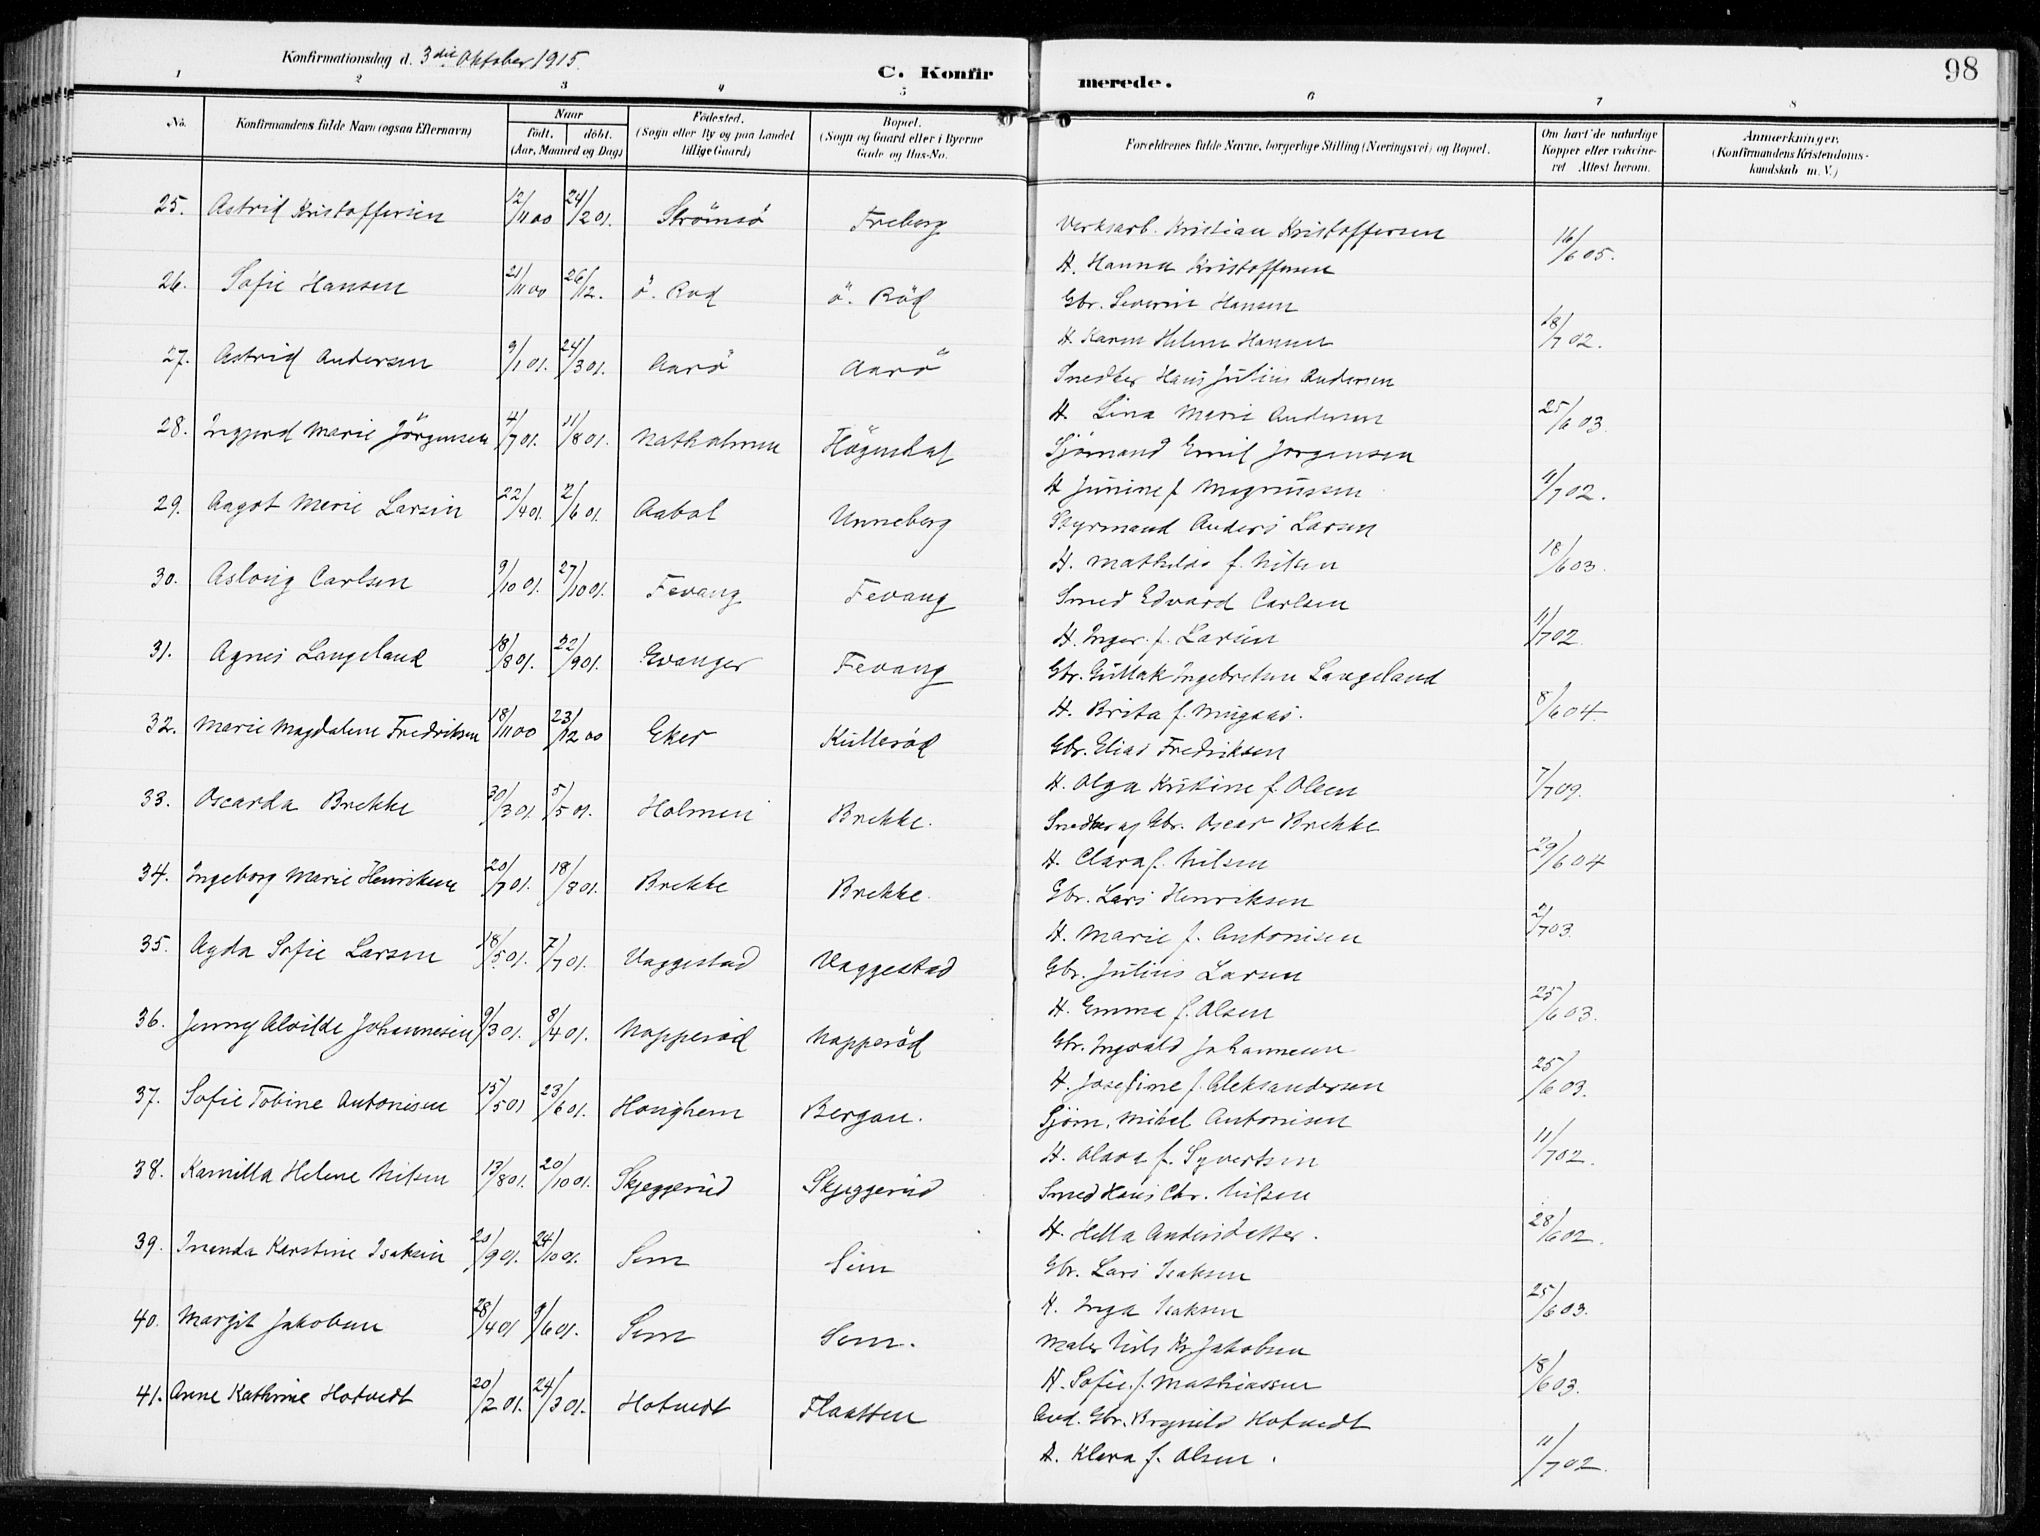 98
Konfirmationsdag d. 3die Oktober 1915.
C. Konfirmerede.
1 2 3 4 5 6 7 8
No. Konfirmandens fulde Navn (ogsaa Efternavn) Naar født, døbt. (Aar, Maaned og Dag) Fødested. (Sogn eller By og paa Landet tillige Gaard) Bopæl. (Sogn og Gaard eller i Byerne Gade og Hus-No. Forældrenes fulde Navne, borgerlige Stilling (Næringsvei) og Bopæl. Om havt de naturlige Kopper eller vakcineret Attest herom. Anmærkninger. (Konfirmandens Kristendomskundskab m. V.)
25. Astrid Kristoffersen 12/11 00 24/2 01. Strömsö Freberg Verksarb. Kristian Kristoffersen
H. Hanna Kristoffersen 16/6 05.
26. Sofie Hansen 21/11 00 26/12. ö. Röd ö. Röd Gbr. Severin Hansen
H. Karen Helene Hansen 18/7 02.
27. Astrid Andersen 9/1 01. 24/3 01. Aarö Aarö Snedker Hans Julius Andersen
H. Lina Marie Andersen 25/6 03.
28. Ingjerd Marie Jörgensen 4/7 01. 11/8 01. Natholmen Högenhal Sjömand Emil Jorgensen
H Junine f Magnussen 11/7 02.
29. Aagot Marie Larsen 22/4 01. 2/6 01. Aabol Unneberg Styrmand Anders Larsen
H. Mathilde f. Nilsen 18/6 03.
30. Aslaug Carlsen 9/10 01. 27/10 01. Fevang Fevang Smed Edvard Carlsen
H. Inger f. Larsen 11/7 02.
31. Agnes Langeland 18/8 01. 22/9 01. Evanger Fevang Gbr. Gullak Ingebretsen Langeland
H. Brita f. Mugaas. 8/6 04.
32. Marie Magdalene Fredriksen 18/11 00 23/12 00 Eker Kulleröd Gbr. Elias Fredriksen
H. Olga Kristine f. Olsen 7/7 09.
33. Oscarda Brekke 30/3 01. 5/5 01. Holmen Brekke. Snedker og Gbr. Oscar Brekke
H. Clara f. Nilsen 29/6 04
34. Ingeborg Marie Henriksen 20/7 01. 18/8 01. Brekke Brekke. Gbr. Lars Henriksen
H. Marie f. Antonisen 2/7 03.
35. Agda Sofie Larsen 18/5 01. 7/7 01. Vaggestad Vaggestad Gbr. Julius Larsen
H. Emma f. Olsen 25/6 03.
36. Jenny Alvilde Johannesen 9/3 01. 8/4 01. Napperöd Napperöd Gbr. Ingvald Johannesen
H. Josefine f. Aleksandersen 25/6 03.
37. Sofie Tobine Antonisen 15/5 01 23/6 01. Haughem Bergan. Sjöm. Mikel Antonisen
H. Olava f. Syvertsen 11/7 02.
38. Kamilla Helene Nilsen 13/8 01. 20/10 01. Skjeggerüd Skjeggerüd Smed Hans Chr. Nilsen
H. Hella Andersdatter. 28/6 02.
39. Inanda Karstine Isaksen 21/9 01. 24/10 01. Sem Sem Gbr. Lars Isaksen
H. Inga Isaksen 25/6 03.
40. Margit Jakobsen 28/4 01 9/6 01. Sem Sem. Maler Nils Kr. Jakobsen
H. Sofie f. Mathiassen 18/6 03.
41. Anne Kathrine Hotvedt 20/2 01. 24/3 01. Hotvedt Flaatten And. Gbr. Brynild Hotvedt
H. Klara f. Olsen. 11/7 02.